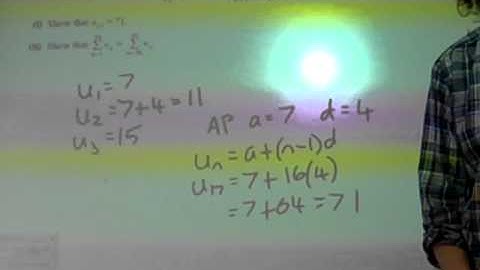 (i) Show that u₁₇ = 71.
(ii) Show that
u₁ = 7
u₂ = 7+4 = 11
u₃ = 15
AP a = 7 d = 4
uₙ = a+(n-1)d
u₁₇ = 7 + 16(4)
= 7+64 = 71